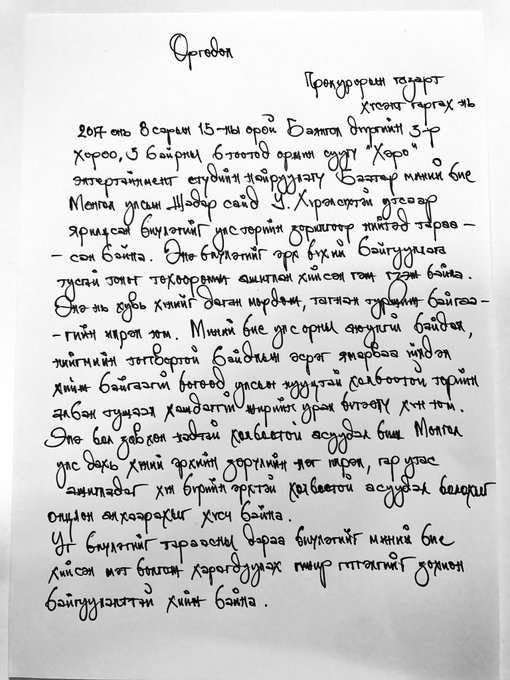 Өргөдөл
Прокурорын газарт
хүсэлт гаргах нь
2017 оны 8 сарын 15-ны орой Баянгол дүүргийн 3-р
хороо, 3 байрны 6 тоотод оршин суугч "Хэро"
энтертайнмент студийн найруулагч Баатар миний бие
Монгол улсын Шадар сайд У. Хүрэлсүхтэй утсаар
ярилцсан бичлэгийг улс төрийн зорилгоор нийтэд тараа-
-сан байна. Энэ бичлэгийг эрх бүхий байгууллага
тусгай тоног төхөөрөмж ашиглан хийсэн гэж үзэж байна.
Энэ нь хувь хүнийг даган мөрдөж, тагнан туршиж байгаа-
-гийн илрэл юм. Миний бие улс орны аюулгүй байдал,
нийгмийн тогтвортой байдлын эсрэг ямарваа үйлдэл
хийж байгаагүй бөгөөд улсын нууцтай холбоотой төрийн
албан тушаал хашдаггүй жирийн уран бүтээлч хүн юм.
Энэ бол зөвхөн надтай холбоотой асуудал биш Монгол
улс дахь хүний эрхийн зөрчлийн нэг төрөл, гар утас
ашигладаг хүн бүрийн эрхтэй холбоотой асуудал болохыг
онцлон анхаарахыг хүсч байна.
Уг бичлэгийг тараасны дараа бичлэгийг миний бие
хийсэн мэт болгож харагдуулах гүжир гүтгэлгийг зохион
байгуулалттай хийж байна.